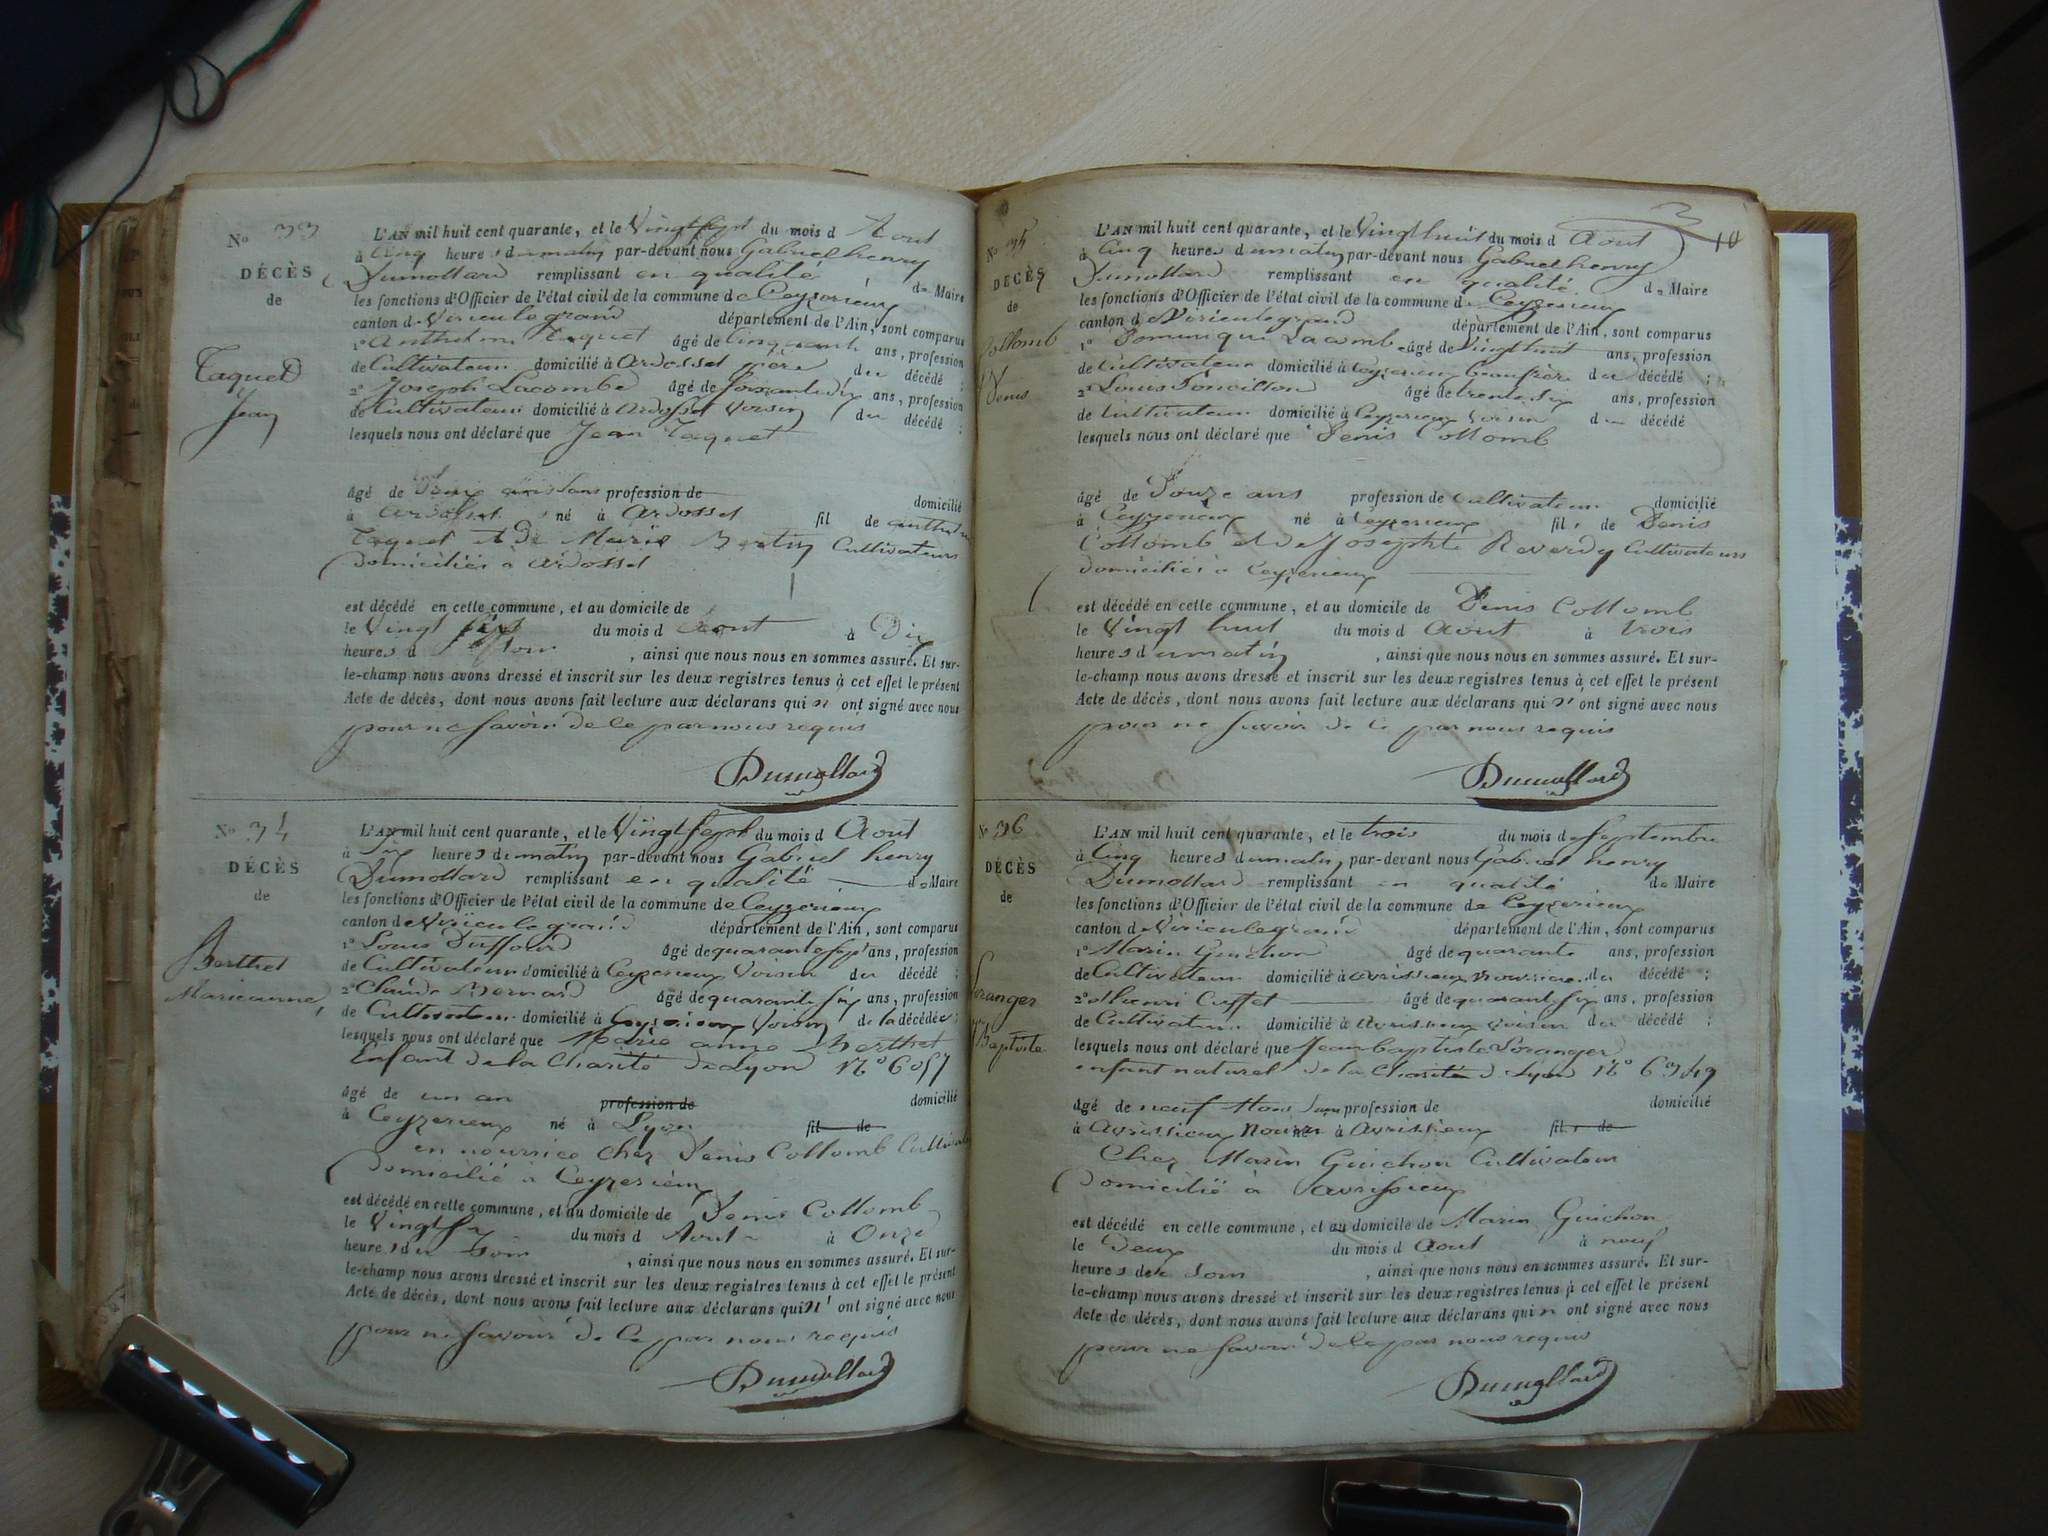 No 33
DÉCÈS
de
Taquet
Jean
L'AN mil huit cent quarante, et le Vingt sept du mois d Aout
à Cinq heures du matin par-devant nous Gabriel henry
Dumollard remplissant en qualité de Maire
les fonctions d'Officier de l'état civil de la commune de Ceyzerieux
canton de Virieulegrand département de l'Ain, sont comparus
1° Anthelme Taquet âgé de Cinquante ans, profession
de Cultivateur domicilié à Ardosset père du décédé ;
2° Joseph Lacombe âgé de soixante dix ans, profession
de Cultivateur domicilié à Ardosset Voisin du décédé ;
lesquels nous ont déclaré que Jean Taquet
âgé de ans sans profession de domicilié
à Ardosset né à Ardosset fil de
Taquet et de Marie Bertin Cultivateurs
domiciliés à Ardosset
est décédé en cette commune, et au domicile de
le Vingt du mois d Aout à Dix
heures d , ainsi que nous nous en sommes assuré. Et sur-
le-champ nous avons dressé et inscrit sur les deux registres tenus à cet effet le présent
Acte de décès, dont nous avons fait lecture aux déclarans qui n' ont signé avec nous
pour ne savoir de ce par nous requis
Dumollard
No 34
DÉCÈS
de
Berthet
Marieanne
L'AN mil huit cent quarante, et le Vingt sept du mois d Aout
à Six heures du matin par-devant nous Gabriel henry
Dumollard remplissant en qualité de Maire
les fonctions d'Officier de l'état civil de la commune de Ceyzerieux
canton de Virieulegrand département de l'Ain, sont comparus
1° Louis Duffourd âgé de quarante sept ans, profession
de Cultivateur domicilié à Ceyzerieux Voisin du décédé ;
2° Claude Bernard âgé de quarante six ans, profession
de Cultivateur domicilié à Ceyzerieux Voisin de la décédée ;
lesquels nous ont déclaré que Marie anne Berthet
Enfant de la Charité de Lyon N° 6057
âgé de un an profession de domicilié
à Ceyzerieux né à Lyon fil de
en nourrice chez Denis Collomb
domicilié à Ceyzerieux
est décédé en cette commune, et au domicile de Denis Collomb
le Vingt six du mois d Aout à Onze
heures du Soir , ainsi que nous nous en sommes assuré. Et sur-
le-champ nous avons dressé et inscrit sur les deux registres tenus à cet effet le présent
Acte de décès, dont nous avons fait lecture aux déclarans qui n' ont signé avec nous
pour ne savoir de ce par nous requis
Dumollard
10
No 35
DÉCÈS
de
Collomb
Denis
L'AN mil huit cent quarante, et le Vingt huit du mois d Aout
à Cinq heures du matin par-devant nous Gabriel henry
Dumollard remplissant en qualité de Maire
les fonctions d'Officier de l'état civil de la commune de Ceyzerieux
canton de Virieulegrand département de l'Ain, sont comparus
1° Dominique Lacombe âgé de Vingt huit ans, profession
de Cultivateur domicilié à Ceyzerieux beaufrère du décédé ;
2° Louis Poncillon âgé de trente six ans, profession
de Cultivateur domicilié à Ceyzerieux Voisin du décédé
lesquels nous ont déclaré que Denis Collomb
âgé de Douze ans profession de Cultivateur domicilié
à Ceyzerieux né à Ceyzerieux fils de Denis
Collomb et de Josephte Reverdy Cultivateurs
domiciliés à Ceyzerieux
est décédé en cette commune, et au domicile de Denis Collomb
le Vingt huit du mois d Aout à trois
heures du matin , ainsi que nous nous en sommes assuré. Et sur-
le-champ nous avons dressé et inscrit sur les deux registres tenus à cet effet le présent
Acte de décès, dont nous avons fait lecture aux déclarans qui n' ont signé avec nous
pour ne savoir de ce par nous requis
Dumollard
No 36
DÉCÈS
de
Loranger
Baptiste
L'AN mil huit cent quarante, et le trois du mois de Septembre
à Cinq heures du matin par-devant nous Gabriel henry
Dumollard remplissant en qualité de Maire
les fonctions d'Officier de l'état civil de la commune de Ceyzerieux
canton de Virieulegrand département de l'Ain, sont comparus
1° Marin Guichon âgé de quarante ans, profession
de Cultivateur domicilié à avrissieux du décédé ;
2° Cuffet âgé de quarante six ans, profession
de Cultivateur domicilié à avrissieux voisin du décédé ;
lesquels nous ont déclaré que Jean baptiste Loranger
enfant naturel de la Charité d Lyon N° 6349
âgé de neuf Mois sans profession de domicilié
à Avrissieux né à Avrissieux fils de
Chez Marin Guichon Cultivateur
domicilié à avrissieux
est décédé en cette commune, et au domicile de Marin Guichon
le Deux du mois d aout à neuf
heures de Soir , ainsi que nous nous en sommes assuré. Et sur-
le-champ nous avons dressé et inscrit sur les deux registres tenus à cet effet le présent
Acte de décès, dont nous avons fait lecture aux déclarans qui n ont signé avec nous
pour ne savoir de ce par nous requis
Dumollard